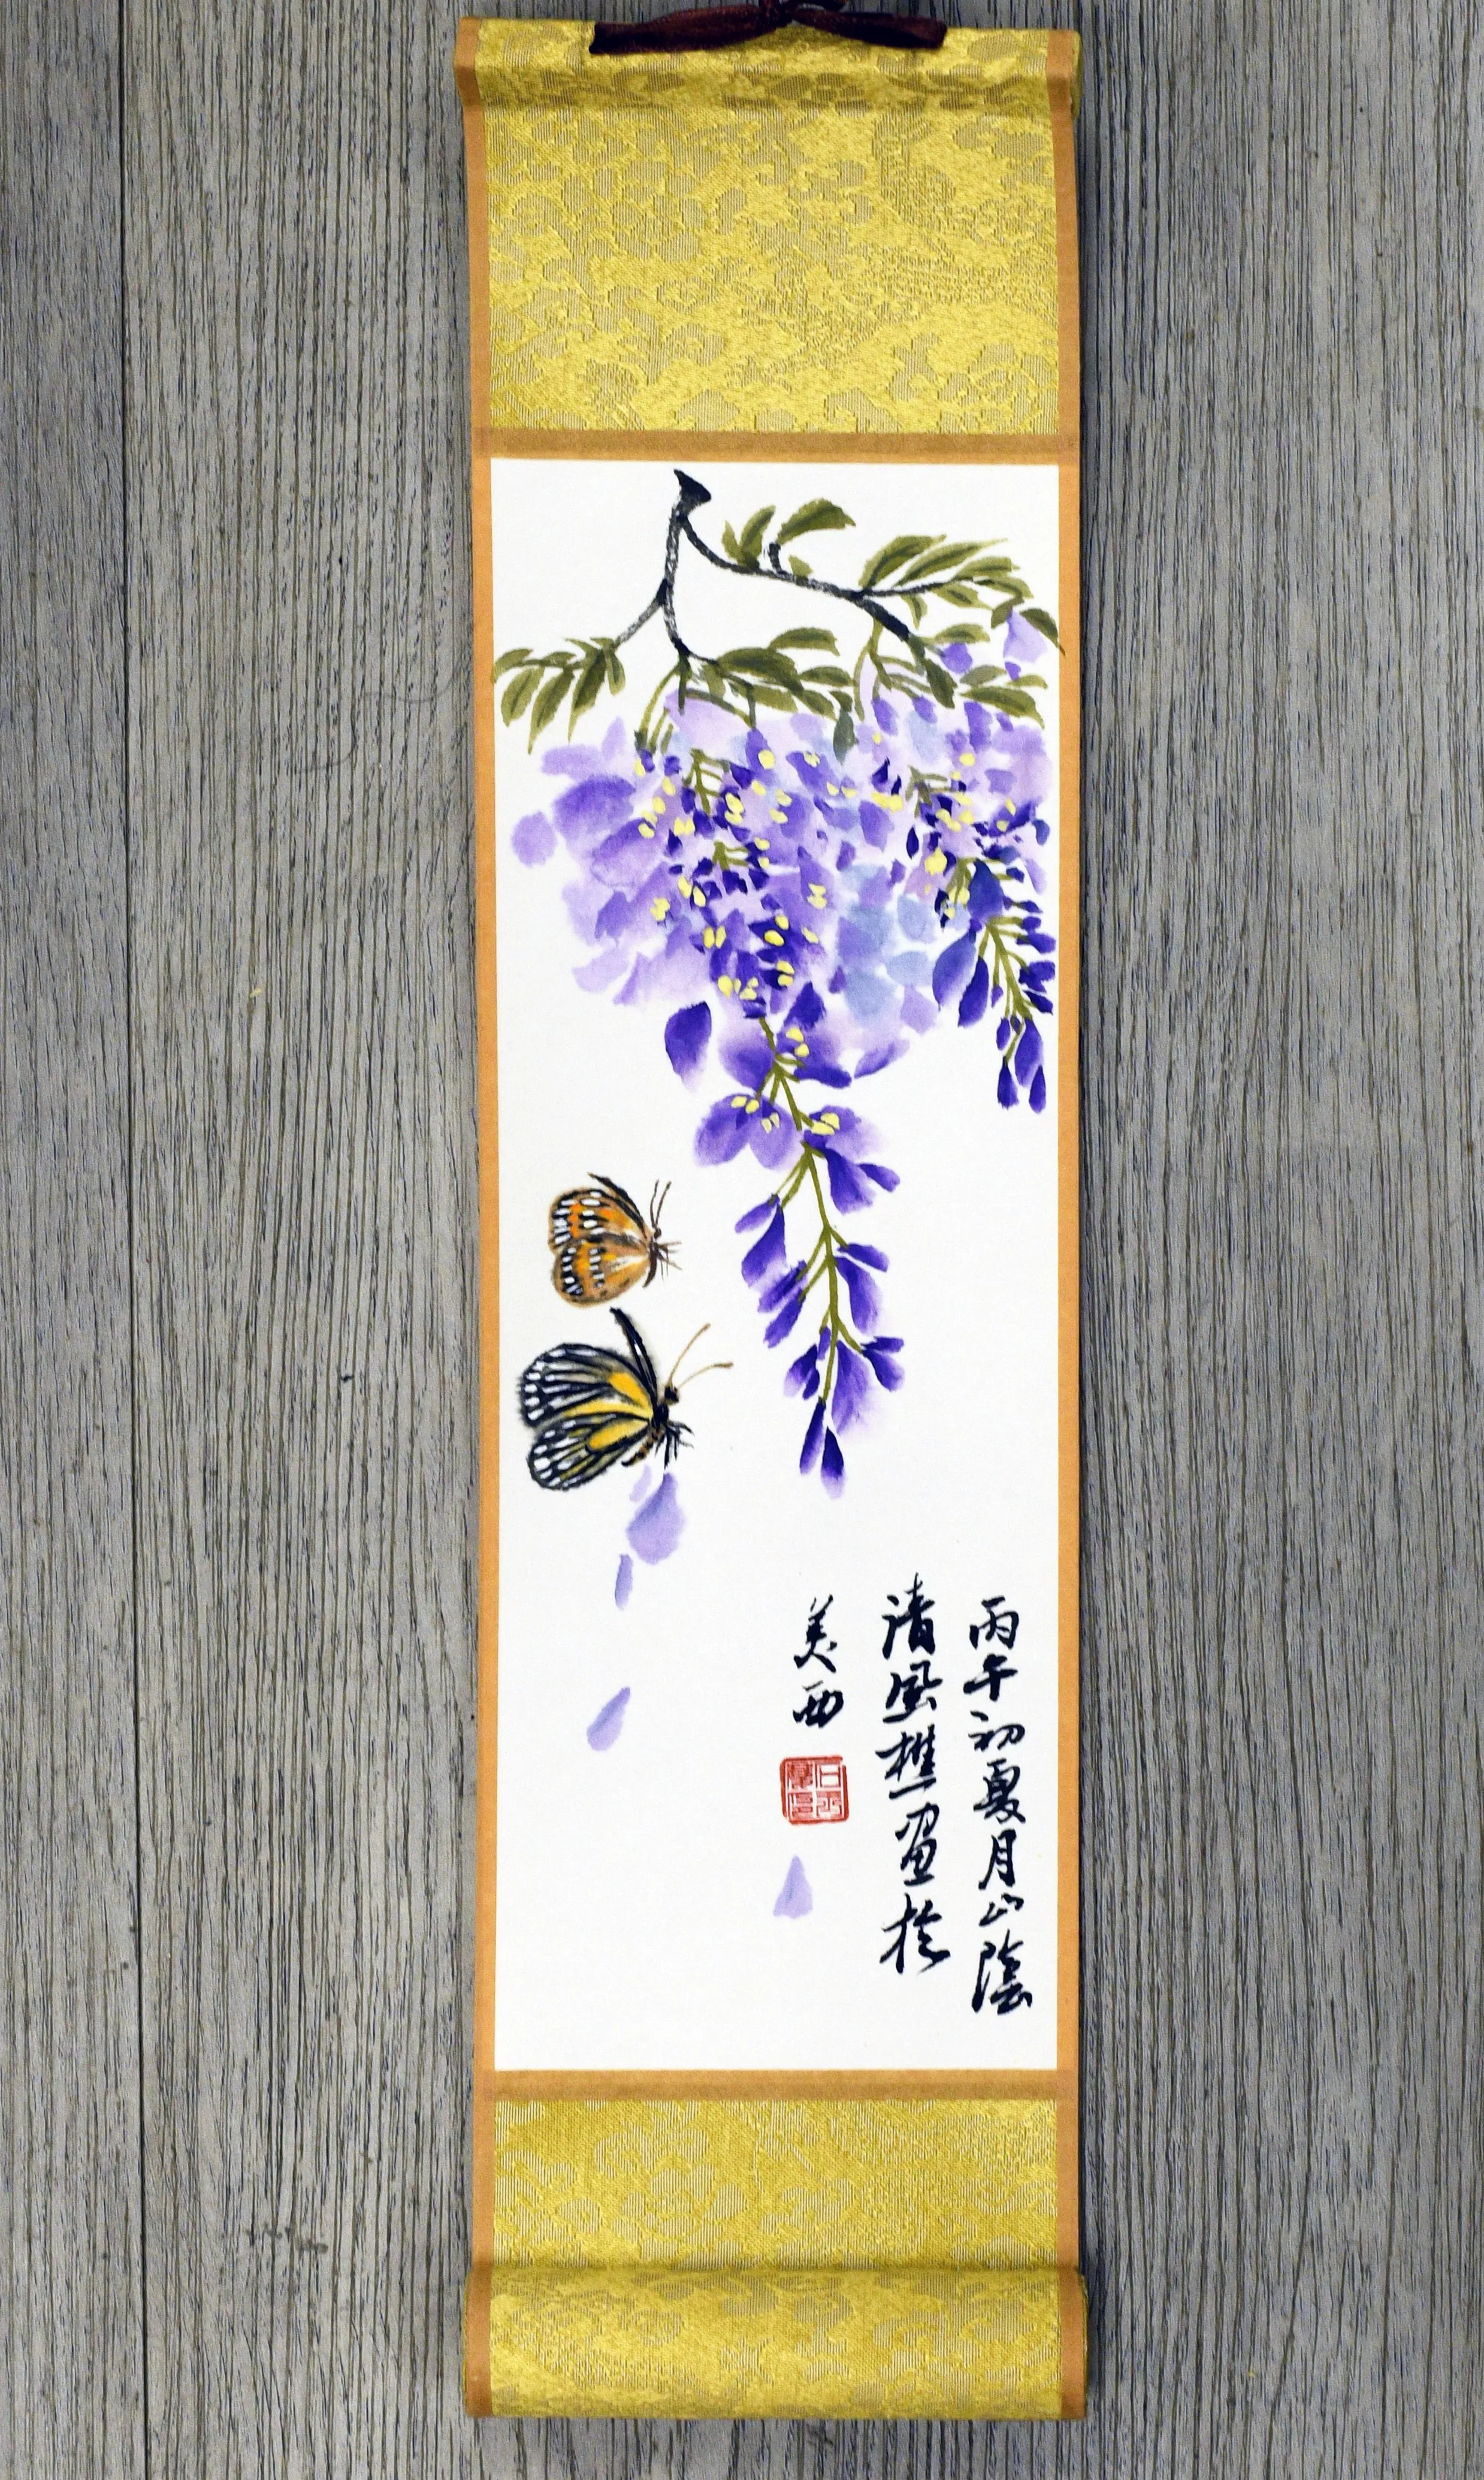 丙午初夏月山陰
清風樵畫於
美西